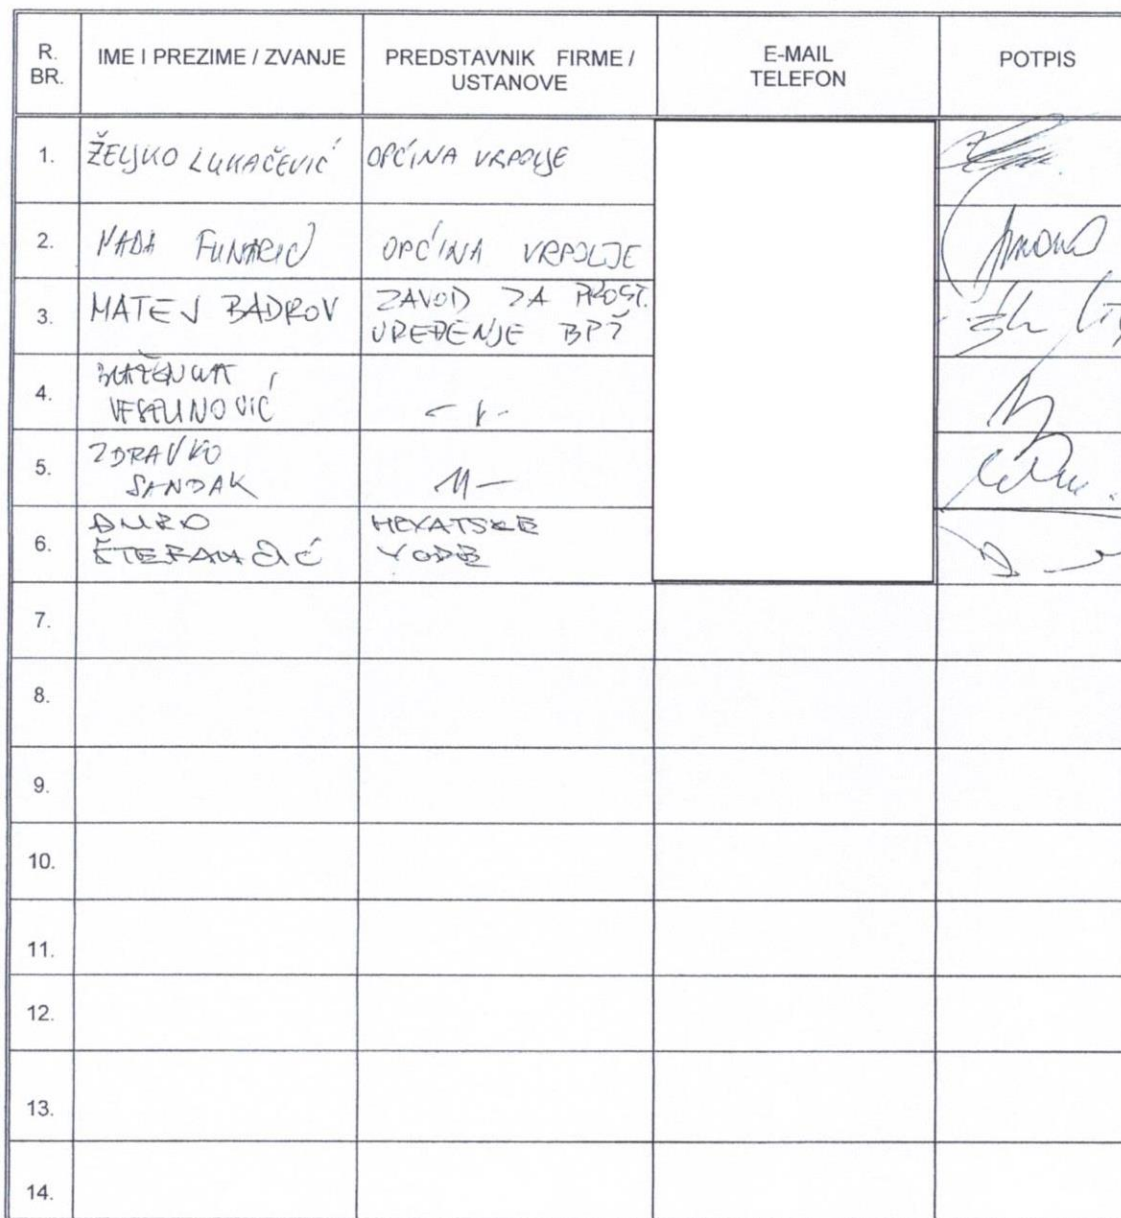 R. BR.
IME I PREZIME / ZVANJE
PREDSTAVNIK FIRME / USTANOVE
E-MAIL TELEFON
POTPIS
1. ŽELJKO LUKAČEVIĆ OPĆINA VRPOLJE
2. NADA FUNARIĆ OPĆINA VRPOLJE
3. MATEJ BADROV ZAVOD ZA PROST. UREĐENJE BPŽ
4. BLAŽENKA VESELINOVIĆ -"-
5. ZDRAVKO SANDAK -"-
6. ĐURO ŠTEFANČIĆ HRVATSKE VODE
7.
8.
9.
10.
11.
12.
13.
14.